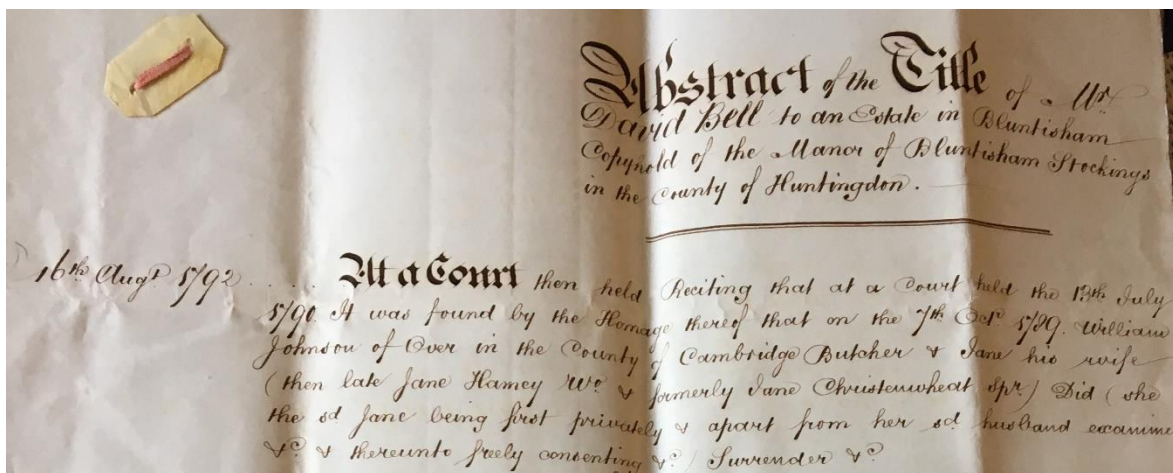 Abstract of the Title of Mr.
David Bell to an Estate in Bluntisham
Copyhold of the Manor of Bluntisham Stockings
in the County of Huntingdon.
16th Augt 1792 .... At a Court then held Reciting that at a Court held the 13th July
1790. It was found by the Homage thereof that on the 7th Octr. 1789. William
Johnson of Over in the County of Cambridge Butcher & Jane his wife
(then late Jane Hamey Wo. & formerly Jane Christenwheat Spr.) Did (she
the sd Jane being first privately & apart from her sd husband examine
&c. & thereunto freely consenting &c.) Surrender &c.